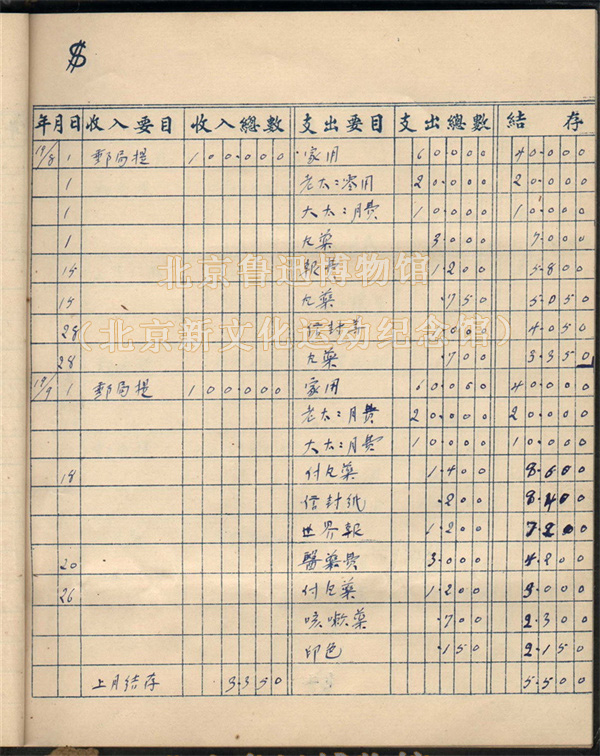 $
年月日 收入要目 收入總數 支出要目 支出總數 結存
19/8 1 郵局提 100.000 家用 60.000 40.000
1 老太:零用 20.000 20.000
1 大太:月費 10.000 10.000
1 丸藥 3.000 7.000
15 報費 1.200 5.800
15 丸藥 .750 5.050
28 信封 1.000 4.050
28 丸藥 .700 3.350
19/9 1 郵局提 100.000 家用 60.000 40.000
老太:月費 20.000 20.000
大太:月費 10.000 10.000
18 付丸藥 1.400 8.600
信封紙 .200 8.400
世界報 1.200 7.200
20 醫藥費 3.000 4.200
26 付丸藥 1.200 3.000
咳嗽藥 .700 2.300
印色 .150 2.150
上月結存 3.350 5.500
北京鲁迅博物馆
（北京新文化运动纪念馆）